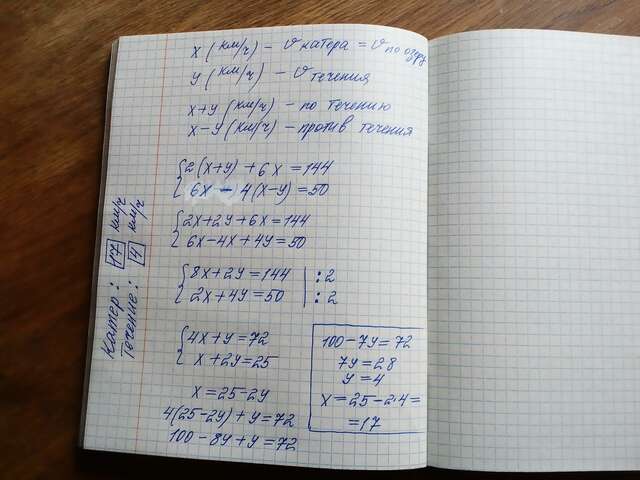 x (км/ч) - υ катера = υ по озеру
y (км/ч) - υ течения
x+y (км/ч) - по течению
x-y (км/ч) - против течения
{2(x+y) + 6x = 144
6x - 4(x-y) = 50
{2x+2y+6x=144
6x-4x+4y=50
{8x+2y=144 | :2
2x+4y=50 | :2
{4x+y=72
x+2y=25
x=25-2y
4(25-2y)+y=72
100-8y+y=72
100-7y=72
7y=28
y=4
x=25-2·4=
=17
Катер: 17 км/ч
Течение: 4 км/ч